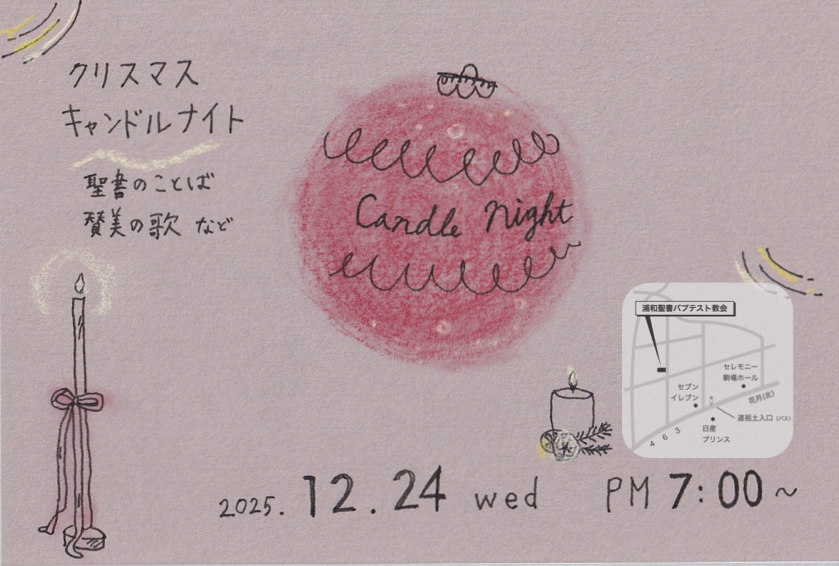 クリスマス
キャンドルナイト
聖書のことば
賛美の歌 など
Candle Night
浦和聖書バプテスト教会
セレモニー
駒場ホール
セブン
イレブン
花月(北)
道祖土入口 (バス)
日産
プリンス
463
2025. 12. 24 wed PM 7:00~